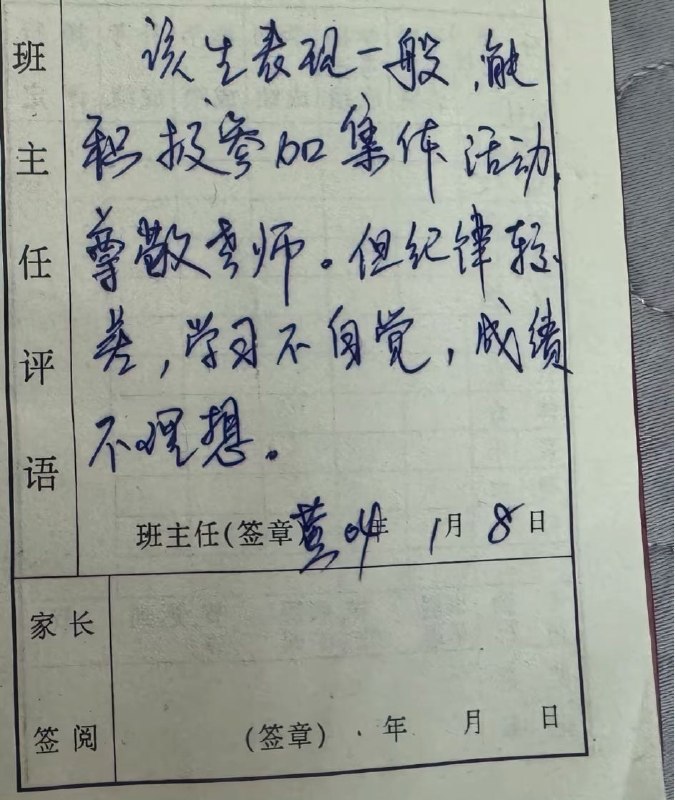 班主任评语
该生表现一般，能
积极参加集体活动，
尊敬老师。但纪律较
差，学习不自觉，成绩
不理想。
班主任(签章) 黄 04年 1月 8日
家长
签阅
(签章) 年 月 日